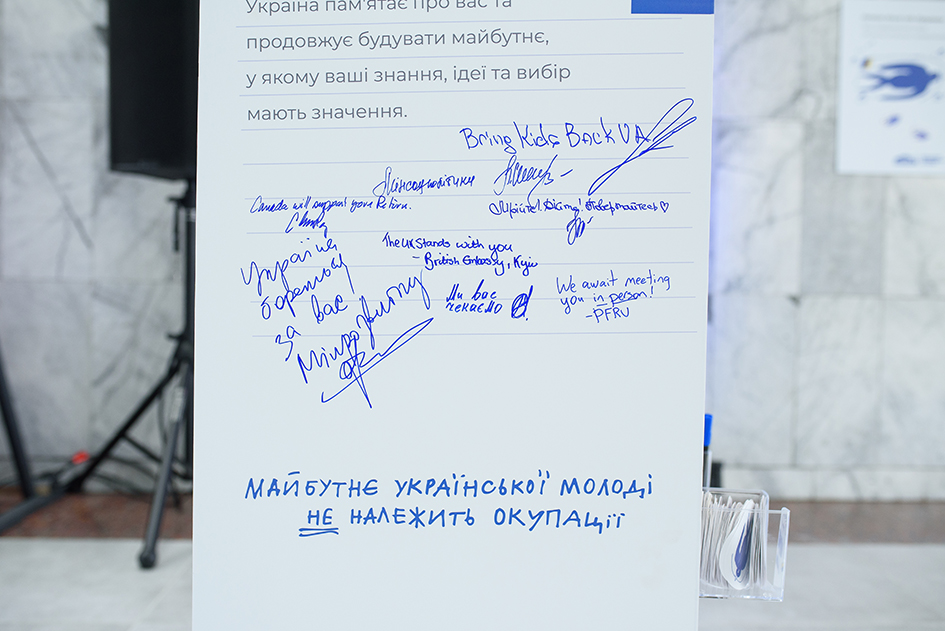 Україна пам'ятає про вас та
продовжує будувати майбутнє,
у якому ваші знання, ідеї та вибір
мають значення.
Bring Kids Back UA
Мінсоцполітики
Canada will support your Return.
Мрійте! Дійте! Повертайтесь ♡
The UK Stands with you
- British Embassy, Kyiv
Україна
бореться
за вас!
Мінрозвитку
Ми вас
чекаємо
We await meeting
you in person!
-PFRU
МАЙБУТНЄ УКРАЇНСЬКОЇ МОЛОДІ
НЕ НАЛЕЖИТЬ ОКУПАЦІЇ